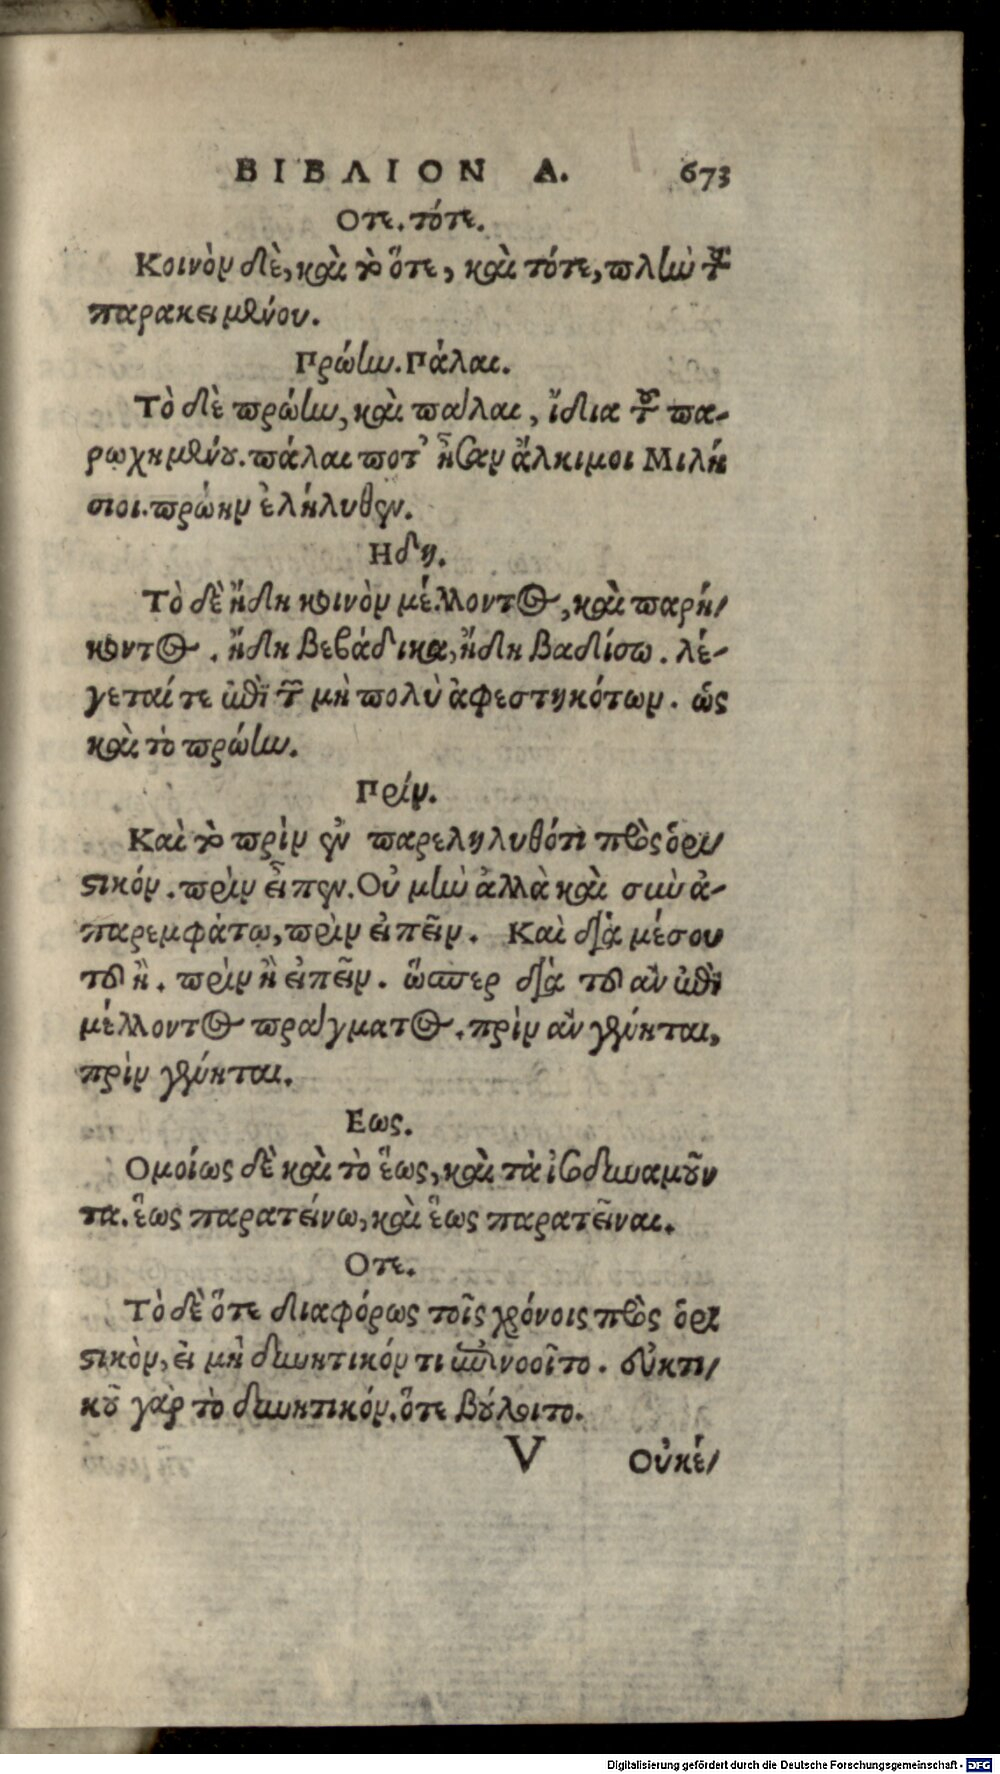 ΒΙΒΛΙΟΝ Δ. 673
Οτε. τότε.
Κοινὸν δὲ, καὶ τὸ ὅτε, καὶ τότε, πλὴν τοῦ
παρακειμένου.
Πρώην. Πάλαι.
Τὸ δὲ πρώην, καὶ πάλαι, ἴδια τοῦ πα-
ρωχημένου. πάλαι ποτ' ἦσαν ἄλκιμοι Μιλή
σιοι. πρώην ἐλήλυθεν.
Ηδη.
Τὸ δὲ ἤδη κοινὸν μέλλοντος, καὶ παρή-
κοντος. ἤδη βεβάδικα, ἤδη βαδίσω. λέ-
γεταί τε ἐπὶ τῶν μὴ πολὺ ἀφεστηκότων. ὡς
καὶ τὸ πρώην.
Πρίν.
Καὶ τὸ πρὶν ἐν παρεληλυθότι πρὸς ὁρι-
στικόν. πρὶν εἶπεν. Οὐ μὴν ἀλλὰ καὶ σὺν ἀ-
παρεμφάτῳ, πρὶν εἰπεῖν. Καὶ διὰ μέσου
τοῦ ἢ. πρὶν ἢ εἰπεῖν. ὥσπερ διὰ τοῦ ἂν ἐπὶ
μέλλοντος πράγματος. πρὶν ἂν γένηται,
πρὶν γένηται.
Εως.
Ομοίως δὲ καὶ τὸ ἕως, καὶ τὰ ἰσοδυναμοῦν
τα. ἕως παρατείνω, καὶ ἕως παρατεῖναι.
Οτε.
Τὸ δὲ ὅτε διαφόρως τοῖς χρόνοις πρὸς ὁρι
στικὸν, εἰ μὴ δυνητικόν τι ὑπονοοῖτο. εὐκτι-
κοῦ γὰρ τὸ δυνητικόν. ὅτε βούλοιτο.
V Οὐκέ-
Digitalisierung gefördert durch die Deutsche Forschungsgemeinschaft - DFG